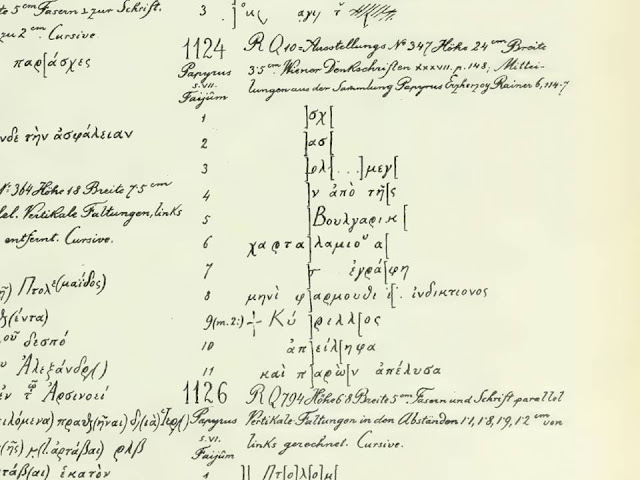 πα̣ρ[άσχες
νδε τὴν ἀσφάλειαν
N° 364 Höhe 18 Breite 7·5 cm
lel. Vertikale Faltungen, links
entfernt. Cursive.
Πτολε(μαΐδος)
οῦ δεσπό
Ἀλεξάνδρ()
ἐν τῷ Ἀρσινοεί
(ῆς) μ(ι. ἀρτάβαι) ρλβ
τάβ(αι) ἑκατὸν
3
1124 R Q 10 = Ausstellungs N° 347 Höhe 24 cm Breite
Papyrus 3·5 cm. Wiener Denkschriften XXXVII. p. 148; Mittei-
s. VII.
Faijûm lungen aus der Sammlung Papyrus Erzherzog Rainer 6, 114·7
1 ]σχ[
2 ]ασ[
3 ]ολ[...]μεγ[
4 ]ν ἀπὸ τῆς
5 ]Βουλγαρικ[
6 χαρτα]λαμιου α[
7 ]τ ἐγράφη
8 μηνὶ φ]αρμουθι ι. ἰνδικτιονος
9 (m. 2:) ⳨ Κύ]ριλλ[ος
10 ἀπ]είλ[ηφα
11 καὶ παρ]ὼ[ν ἀπέλυσα
1126 R Q 794 Höhe 6·8 Breite 5 cm. Fasern und Schrift parallel
Papyrus Vertikale Faltungen in den Abständen 1,1, 1,8, 1,9, 1,2 cm von
s. VI.
Faijûm links gerechnet. Cursive.
1 ]] Πτ[ο]λ[ο]μ[